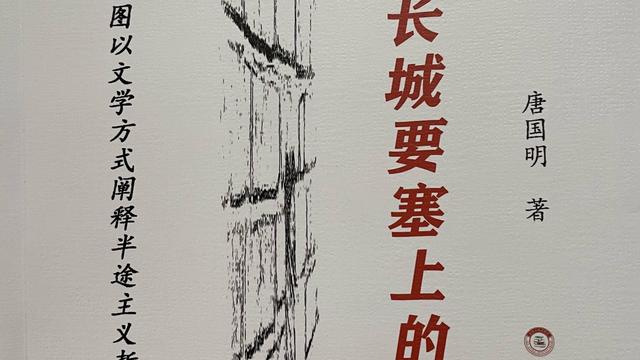 唐国明 著
长城要塞上的
图以文学方式阐释半途主义哲